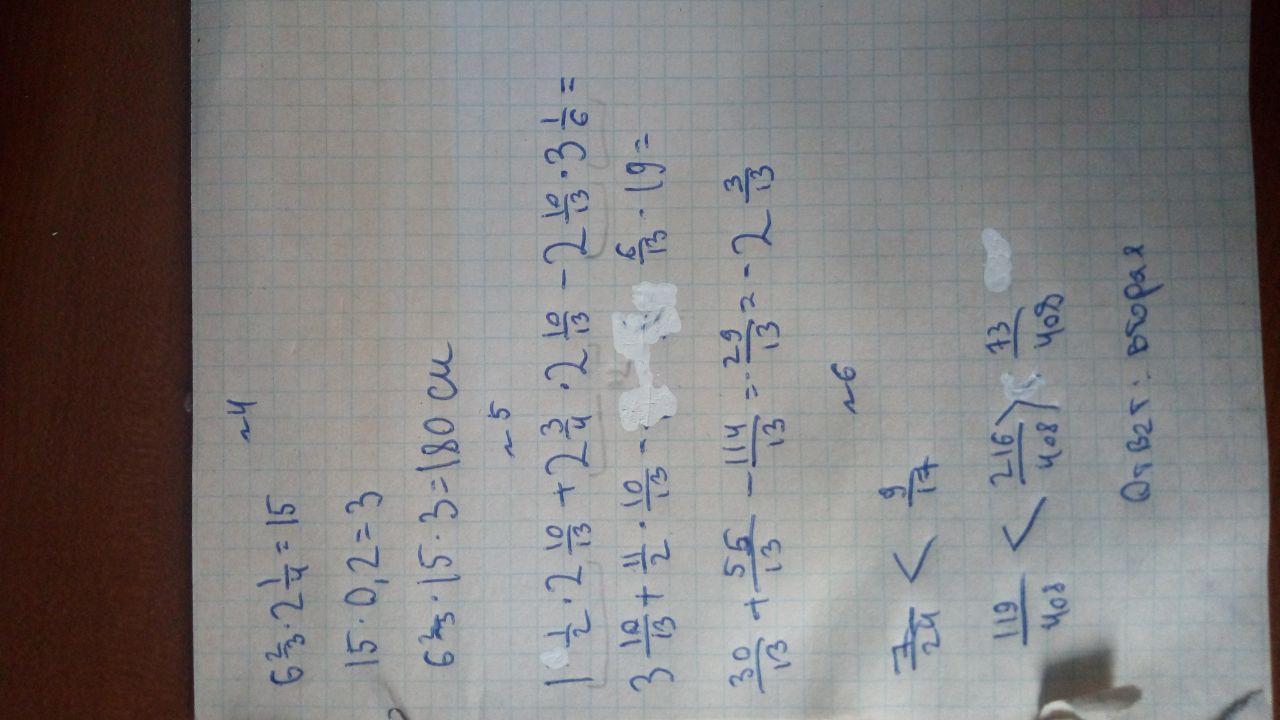 ~4
6 2/3 · 2 1/4 = 15
15 · 0,2 = 3
6 2/3 · 15 · 3 = 180 см
~5
1 1/2 · 2 10/13 + 2 3/4 · 2 10/13 - 2 10/13 · 3 1/6 =
3 12/13 + 11/2 · 10/13 - 6/13 · 19 =
30/13 + 55/13 - 114/13 = - 29/13 = - 2 3/13
~6
7/24 < 9/17
119/408 < 216/408 73/408
Ответ: вторая